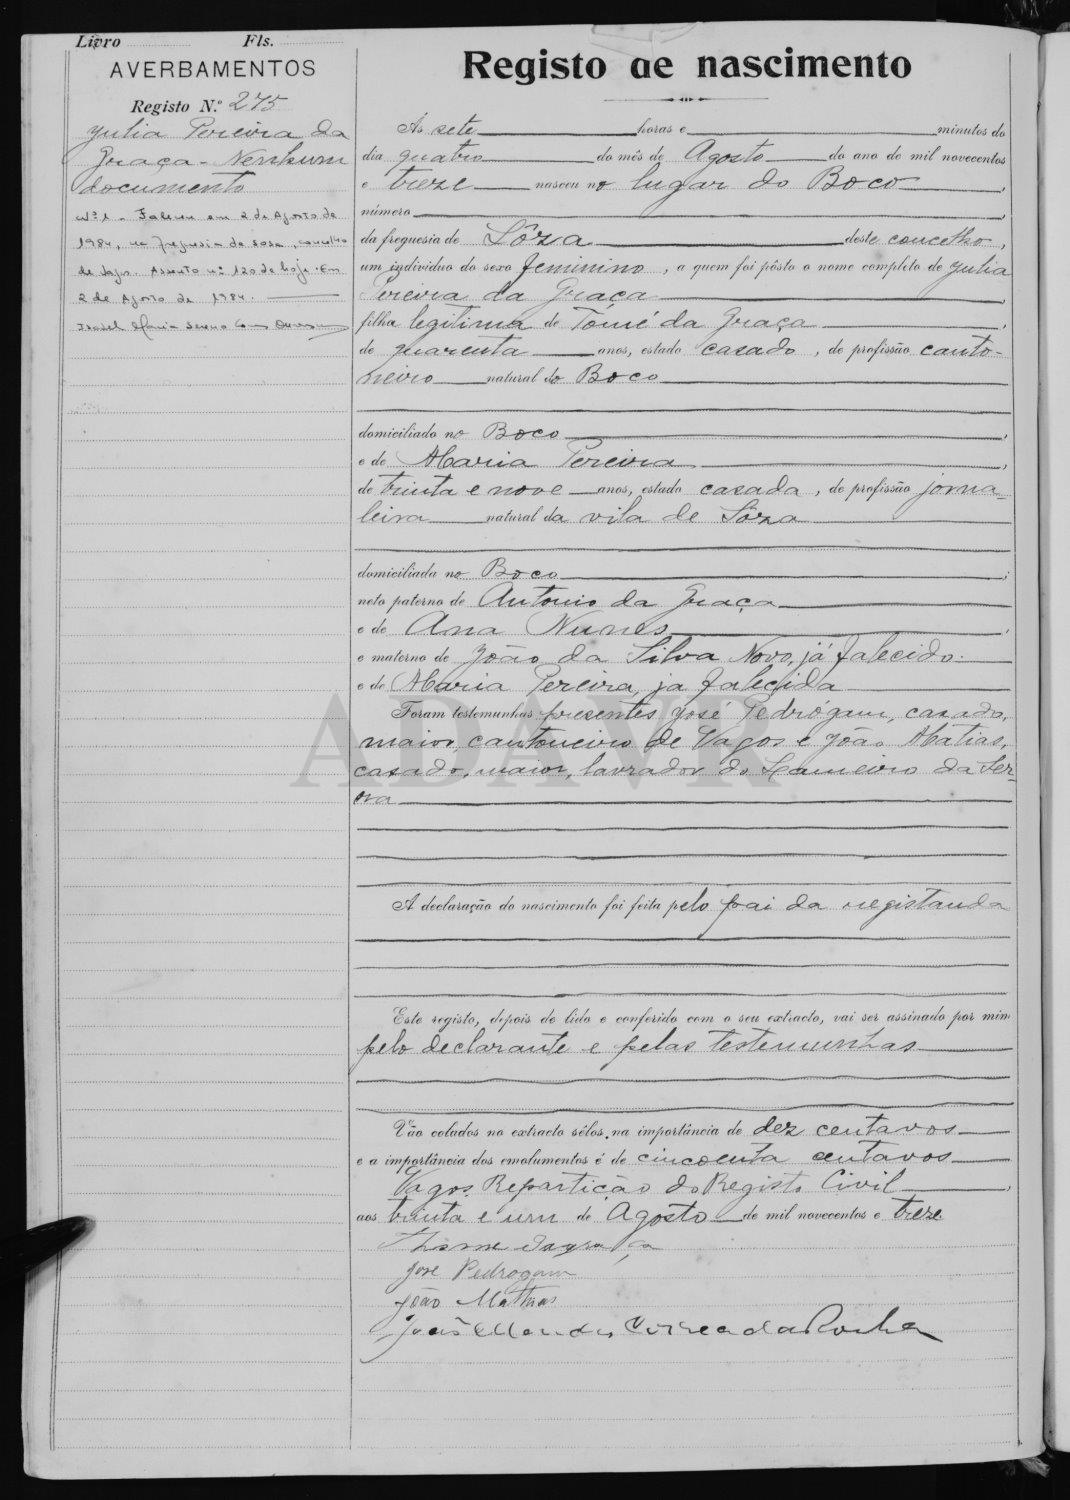 Livro Fls.
AVERBAMENTOS
Registo N.º 275
Julia Pereira da
Graça - Nenhum
documento
Nº 1 - Faleceu em 2 de Agosto de
1984, na freguesia de Sosa, concelho
de Vagos. Assento nº 120 de hoje. Em
2 de Agosto de 1984.
Isabel Maria
Registo de nascimento
As sete horas e minutos do
dia quatro do mês de Agosto do ano de mil novecentos
e treze nasceu no lugar do Boco,
número,
da freguesia de Sôza deste concelho,
um indivíduo do sexo feminino, a quem foi pôsto o nome completo de Julia
Pereira da Graça,
filha legitima de Tomé da Graça,
de quarenta anos, estado casado, de profissão canto-
neiro natural do Boco
domiciliado no Boco,
e de Maria Pereira,
de trinta e nove anos, estado casada, de profissão jorna-
leira natural da vila de Sôza
domiciliada no Boco;
neto paterno de Antonio da Graça
e de Ana Nunes,
e materno de João da Silva Novo, já falecido.
e de Maria Pereira, ja falecida
Foram testemunhas presentes José Pedrógam, casado,
maior, cantoneiro de Vagos e João Matias,
casado, maior, lavrador do Lameiro da Ser-
ra
A declaração do nascimento foi feita pelo pai da registanda
Este registo, depois de lido e conferido com o seu extracto, vai ser assinado por mim
pelo declarante e pelas testemunhas
Vão colados no extracto sêlos na importância de dez centavos
e a importância dos emolumentos é de cincoenta centavos
Vagos, Repartição do Registo Civil,
aos trinta e um de Agosto de mil novecentos e treze.
Thome da graça
José Pedrogam
João Mathias
João Mendes Correa da Rocha
ADAVR